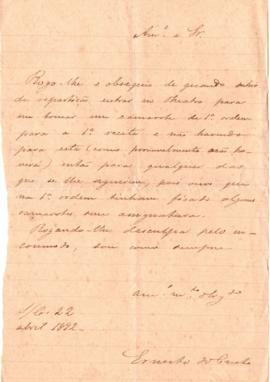 Am.º e Sr.
Rogo-lhe o obsequio de quando sahir
da repartição entrar no theatro para
me tomar um camarote de 1ª ordem
para a 1ª recita e não havendo
para esta (como provavelmente não ha
verá) então para qualquer das
que se lhe seguirem, pois ouvi que
na 1ª ordem tinham ficado alguns
camarotes sem assignatura.
Rogando-lhe desculpa pelo in-
commodo, sou como sempre
am.º m.to obg.do
S/C. 22
abril 1892
Ernesto do Canto